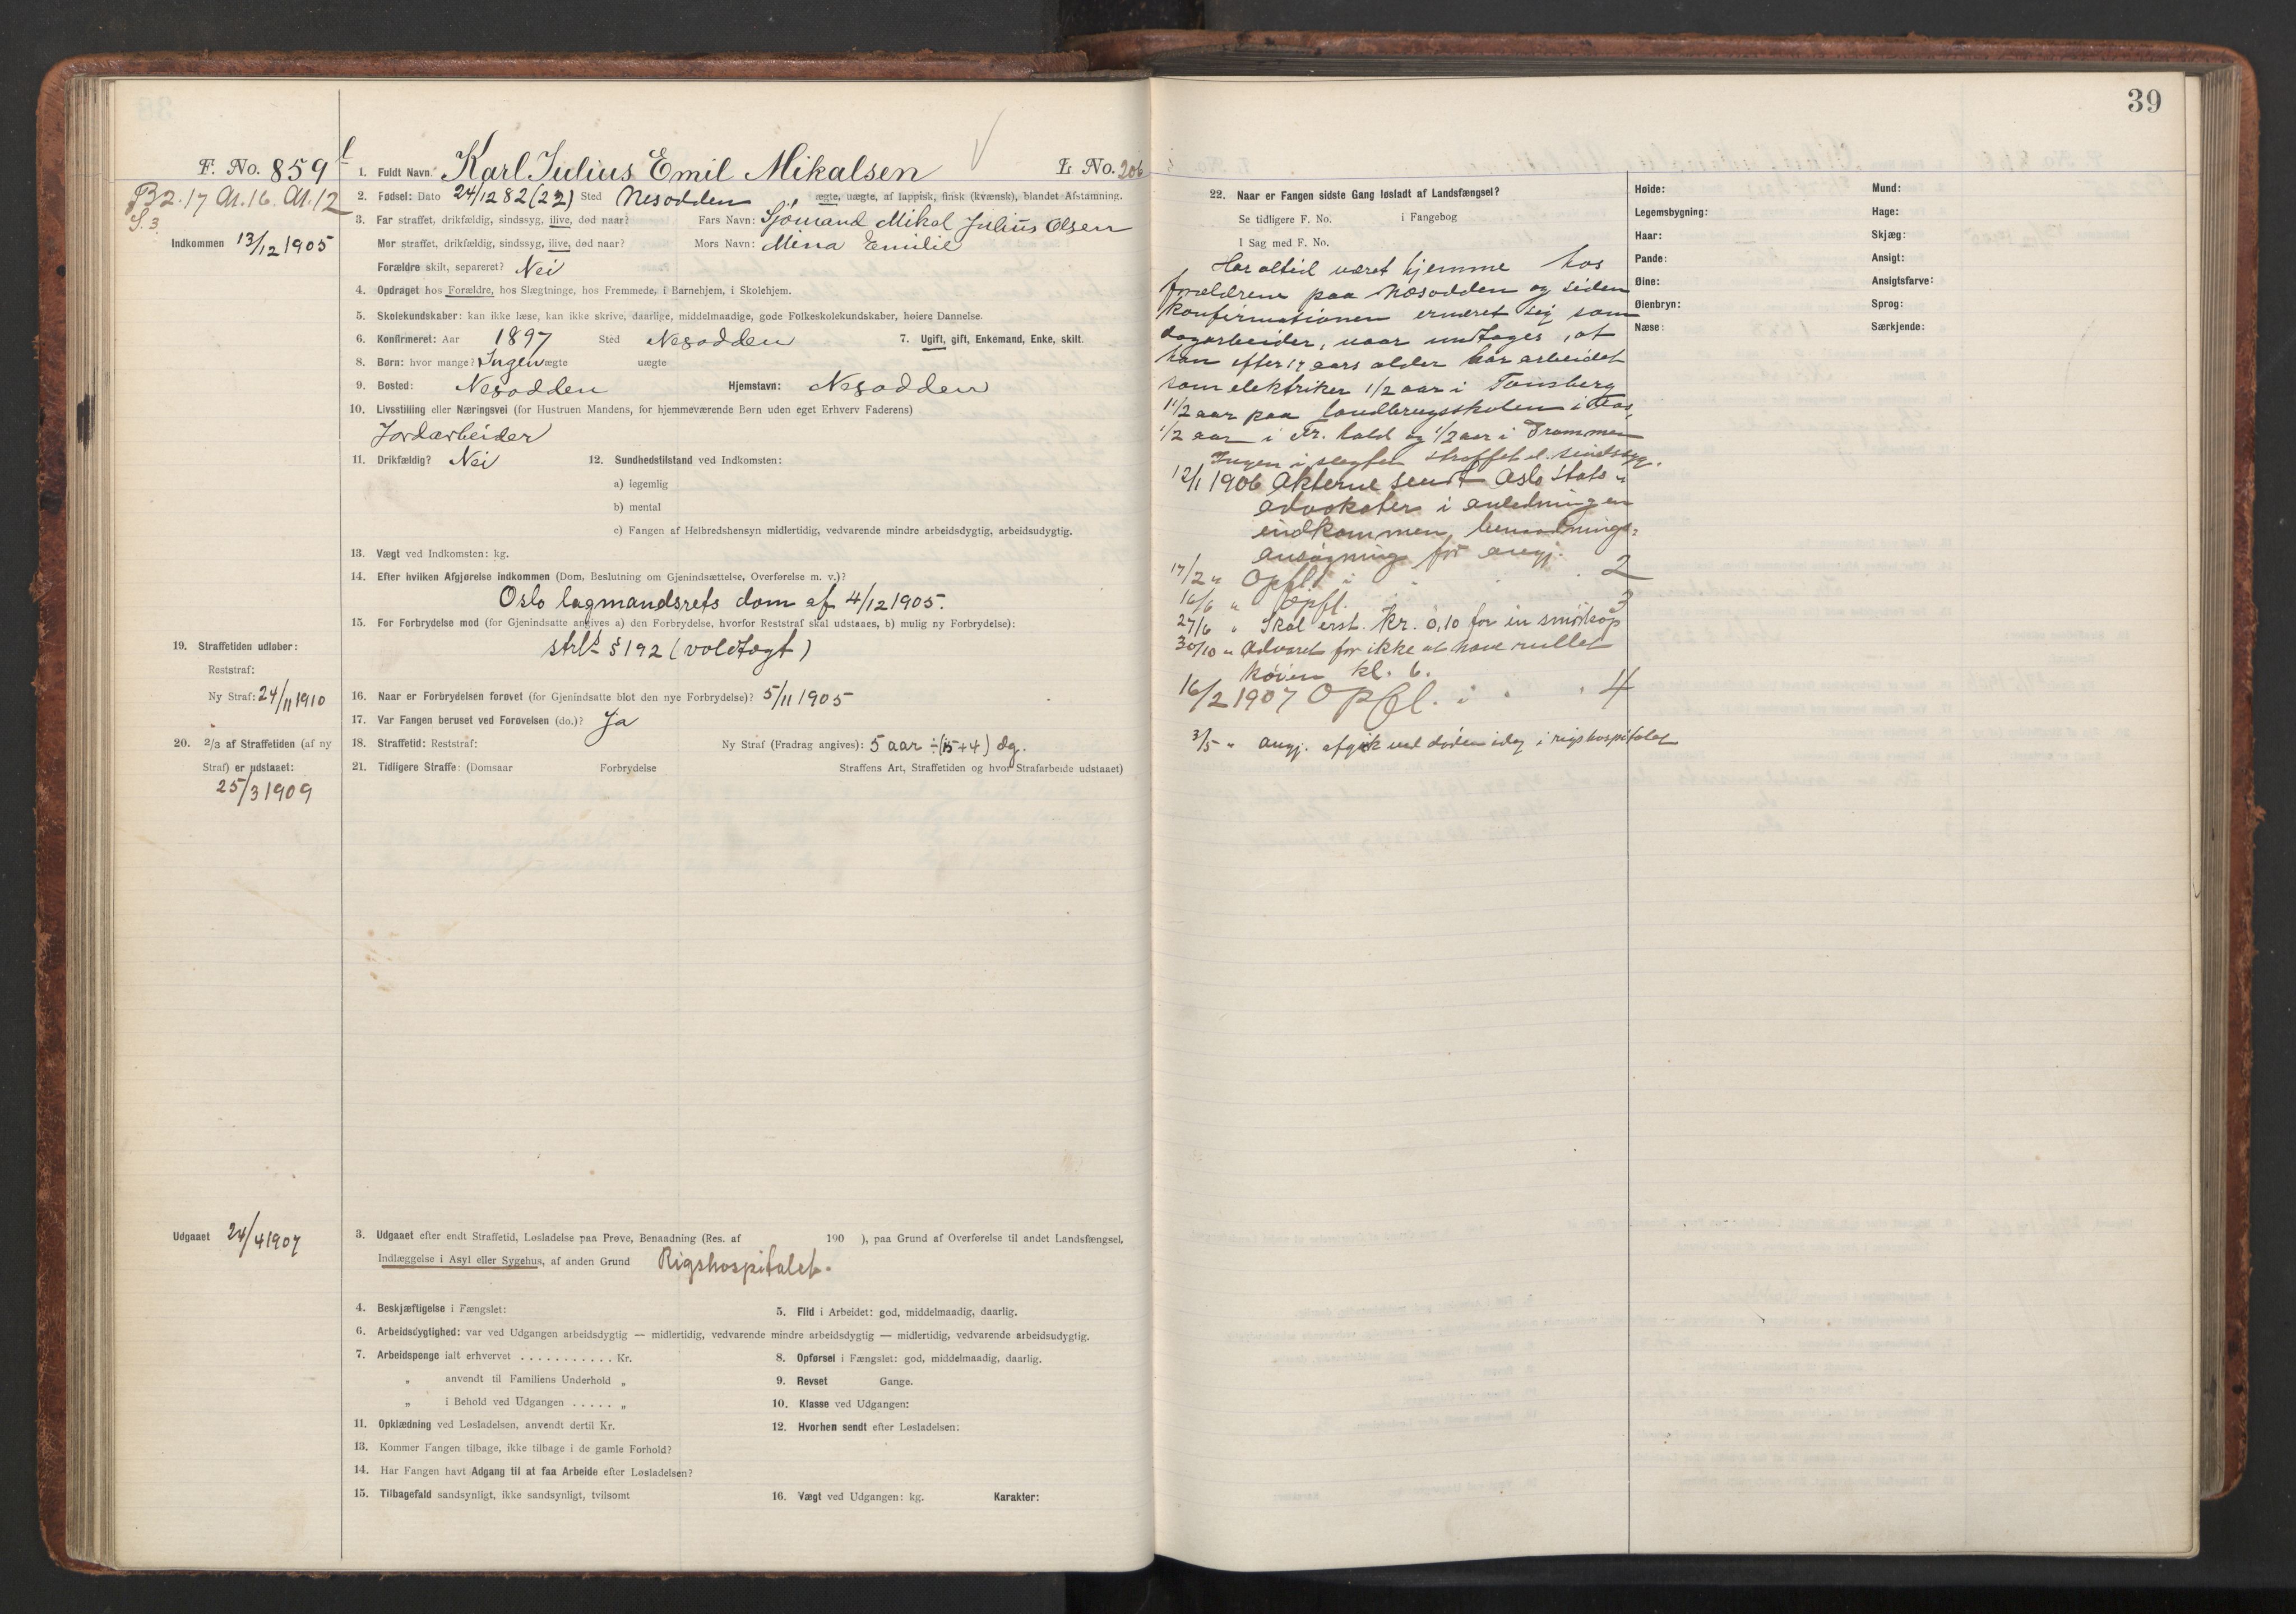 39
F. No. 859
1. Fuldt Navn. Karl Julius Emil Mikalsen
L. No. 206
B2.17 A1.16. A1.12
S. 3.
2. Fødsel: Dato 24/12 82 (22) Sted Nesodden ægte, uægte, af lappisk, finsk (kvænsk), blandet Afstamning.
3. Far straffet, drikfældig, sindssyg, ilive, død naar? Fars Navn: Sjømand Mikal Julius Olsen
Indkommen 13/12 1905
Mor straffet, drikfældig, sindssyg, ilive, død naar? Mors Navn: Mina Emilie
Forældre skilt, separeret? Nei
4. Opdraget hos Forældre, hos Slægtninge, hos Fremmede, i Barnehjem, i Skolehjem.
5. Skolekundskaber: kan ikke læse, kan ikke skrive, daarlige, middelmaadige, gode Folkeskolekundskaber, høiere Dannelse.
6. Konfirmeret: Aar 1897 Sted Nesodden 7. Ugift, gift, Enkemand, Enke, skilt.
8. Børn: hvor mange? Ingen ægte uægte
9. Bosted: Nesodden Hjemstavn: Nesodden
10. Livsstilling eller Næringsvei (for Hustruen Mandens, for hjemmeværende Børn uden eget Erhverv Faderens)
Jordarbeider
11. Drikfældig? Nei 12. Sundhedstilstand ved Indkomsten:
a) legemlig
b) mental
c) Fangen af Helbredshensyn midlertidig, vedvarende mindre arbeidsdygtig, arbeidsudygtig.
13. Vægt ved Indkomsten: kg.
14. Efter hvilken Afgjørelse indkommen (Dom, Beslutning om Gjenindsættelse, Overførelse m. v.)?
Oslo lagmandsrets dom af 4/12 1905.
15. For Forbrydelse mod (for Gjenindsatte angives a) den Forbrydelse, hvorfor Reststraf skal udstaaes, b) mulig ny Forbrydelse):
strl. § 192 (voldtægt)
19. Straffetiden udløber:
Reststraf:
Ny Straf: 24/11 1910
16. Naar er Forbrydelsen forøvet (for Gjenindsatte blot den nye Forbrydelse)? 5/11 1905
17. Var Fangen beruset ved Forøvelsen (do.)? Ja
20. 2/3 af Straffetiden (af ny
Straf) er udstaaet:
25/3 1909
18. Straffetid: Reststraf: Ny Straf (Fradrag angives): 5 aar ÷ (15+4) dg.
21. Tidligere Straffe: (Domsaar Forbrydelse Straffens Art, Straffetiden og hvor Strafarbeide udstaaet)
Udgaaet 24/4 1907
3. Udgaaet efter endt Straffetid, Løsladelse paa Prøve, Benaadning (Res. af 190 ), paa Grund af Overførelse til andet Landsfængsel,
Indlæggelse i Asyl eller Sygehus, af anden Grund Rigshospitalet.
4. Beskjæftigelse i Fængslet: 5. Flid i Arbeidet: god, middelmaadig, daarlig.
6. Arbeidsdygtighed: var ved Udgangen arbeidsdygtig — midlertidig, vedvarende mindre arbeidsdygtig — midlertidig, vedvarende arbeidsudygtig.
7. Arbeidspenge ialt erhvervet . . . . . . . . . . . Kr. 8. Opførsel i Fængslet: god, middelmaadig, daarlig.
„ anvendt til Familiens Underhold „ 9. Revset Gange.
„ i Behold ved Udgangen . . . . . „ 10. Klasse ved Udgangen:
11. Opklædning ved Løsladelsen, anvendt dertil Kr. 12. Hvorhen sendt efter Løsladelsen:
13. Kommer Fangen tilbage, ikke tilbage i de gamle Forhold?
14. Har Fangen havt Adgang til at faa Arbeide efter Løsladelsen?
15. Tilbagefald sandsynligt, ikke sandsynligt, tvilsomt 16. Vægt ved Udgangen: kg. Karakter:
22. Naar er Fangen sidste Gang løsladt af Landsfængsel?
Se tidligere F. No. i Fangebog
I Sag med F. No.
Har altid været hjemme hos
forældrene paa Næsodden og siden
konfirmationen ernæret sig som
dagarbeider, naar undtages, at
han efter 17 aars alder har arbeidet
som elektriker 1/2 aar i Tønsberg
1 1/2 aar paa landbrugsskolen i Aas,
1/2 aar i Fr.hald og 1/2 aar i Drammen
Ingen i slegten straffet el. sindssyg.
12/1 1906 Akterne sendt Oslo stats-
advokater i anledningen
indkommen benaadnings-
ansøgning for angj.
17/2 „ Opfl. i 2
16/6 „ Opfl. 3
27/6 „ Skal erst. Kr. 0,10 for en smørkop
30/10 „ Advaret for ikke at have rullet
køien kl. 6.
16/2 1907 Opfl. i 4
3/5 „ angj. afgik ved døden idag i rigshospitalet
Høide:
Legemsbygning:
Haar:
Pande:
Øine:
Øienbryn:
Næse:
Mund:
Hage:
Skjæg:
Ansigt:
Ansigtsfarve:
Sprog:
Særkjende: